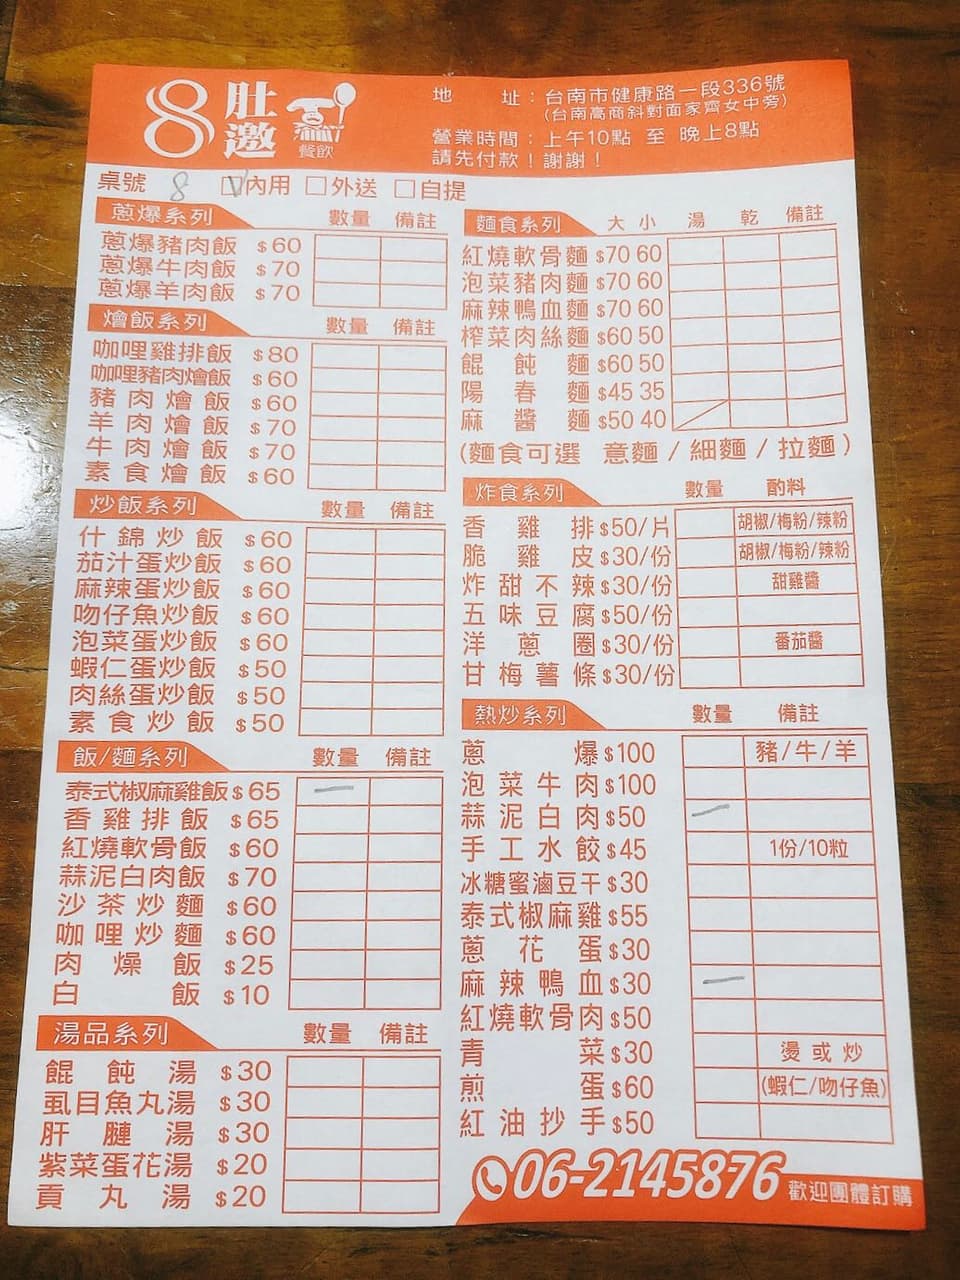 8 肚邀
餐飲
地 址：台南市健康路一段336號
(台南高商斜對面家齊女中旁)
營業時間：上午10點 至 晚上8點
請先付款！謝謝！
桌號 8 ☑內用 □外送 □自提
蔥爆系列 數量 備註
蔥爆豬肉飯 $60
蔥爆牛肉飯 $70
蔥爆羊肉飯 $70
燴飯系列 數量 備註
咖哩雞排飯 $80
咖哩豬肉燴飯 $60
豬肉燴飯 $60
羊肉燴飯 $70
牛肉燴飯 $70
素食燴飯 $60
炒飯系列 數量 備註
什錦炒飯 $60
茄汁蛋炒飯 $60
麻辣蛋炒飯 $60
吻仔魚炒飯 $60
泡菜蛋炒飯 $60
蝦仁蛋炒飯 $50
肉絲蛋炒飯 $50
素食炒飯 $50
飯/麵系列 數量 備註
泰式椒麻雞飯 $65 一
香雞排飯 $65
紅燒軟骨飯 $60
蒜泥白肉飯 $70
沙茶炒麵 $60
咖哩炒麵 $60
肉燥飯 $25
白飯 $10
湯品系列 數量 備註
餛飩湯 $30
虱目魚丸湯 $30
肝腱湯 $30
紫菜蛋花湯 $20
貢丸湯 $20
麵食系列 大 小 湯 乾 備註
紅燒軟骨麵 $70 60
泡菜豬肉麵 $70 60
麻辣鴨血麵 $70 60
榨菜肉絲麵 $60 50
餛飩麵 $60 50
陽春麵 $45 35
麻醬麵 $50 40
(麵食可選 意麵 / 細麵 / 拉麵)
炸食系列 數量 酌料
香雞排 $50/片 胡椒/梅粉/辣粉
脆雞皮 $30/份 胡椒/梅粉/辣粉
炸甜不辣 $30/份 甜雞醬
五味豆腐 $50/份
洋蔥圈 $30/份 番茄醬
甘梅薯條 $30/份
熱炒系列 數量 備註
蔥爆 $100 豬/牛/羊
泡菜牛肉 $100
蒜泥白肉 $50 一
手工水餃 $45 1份/10粒
冰糖蜜滷豆干 $30
泰式椒麻雞 $55
蔥花蛋 $30
麻辣鴨血 $30 一
紅燒軟骨肉 $50
青菜 $30 燙或炒
煎蛋 $60 (蝦仁/吻仔魚)
紅油抄手 $50
06-2145876 歡迎團體訂購